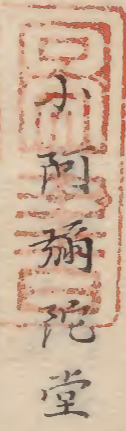 小阿彌陀堂